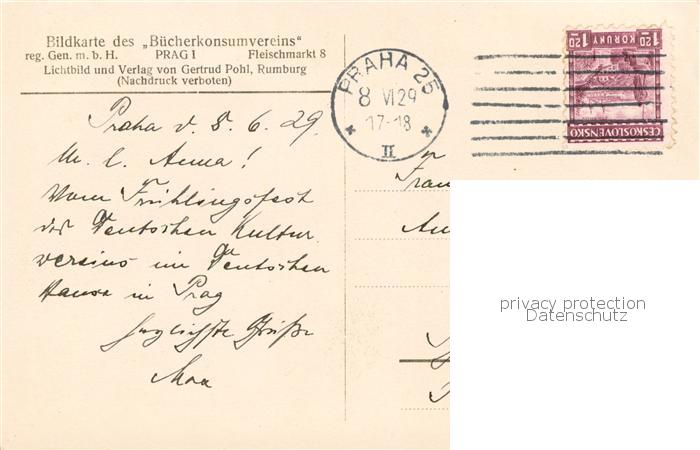 Bildkarte des „Bücherkonsumvereins“
reg. Gen. m. b. H. PRAG I Fleischmarkt 8
Lichtbild und Verlag von Gertrud Pohl, Rumburg
(Nachdruck verboten)
PRAHA 25
8 VI 29
17-18
* II *
1.20 KORUNY 1.20
ČESKOSLOVENSKO
Praha d. 8. 6. 29.
M. l. Anna!
Vom Frühlingsfest
des Deutschen Kultur
vereins im Deutschen
Hause in Prag
herzlichste Grüße
Max
Frau
privacy protection
Datenschutz